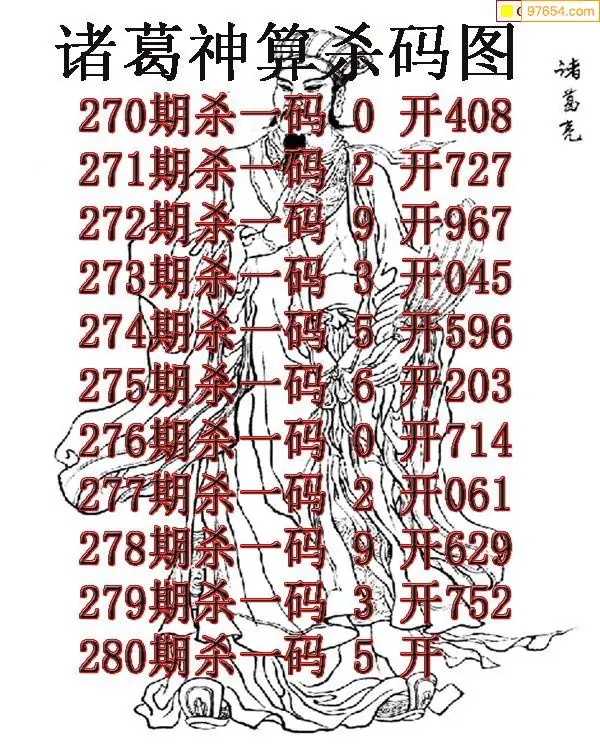 97654.com
诸葛神算杀码图
诸葛亮
270期杀一码 0 开408
271期杀一码 2 开727
272期杀一码 9 开967
273期杀一码 3 开045
274期杀一码 5 开596
275期杀一码 6 开203
276期杀一码 0 开714
277期杀一码 2 开061
278期杀一码 9 开629
279期杀一码 3 开752
280期杀一码 5 开